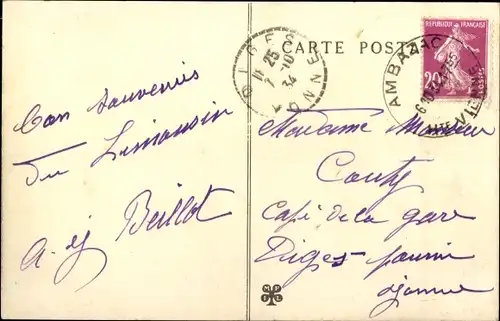 CARTE POSTALE
REPUBLIQUE FRANÇAISE
20
AMBAZAC
DIGES
11 25
7 -10
34
YONNE
Bon souvenirs
du Limousin
A. et J Baillot
Madame Monsieur
Couty
Café de la gare
Diges-pourrin
Yonne